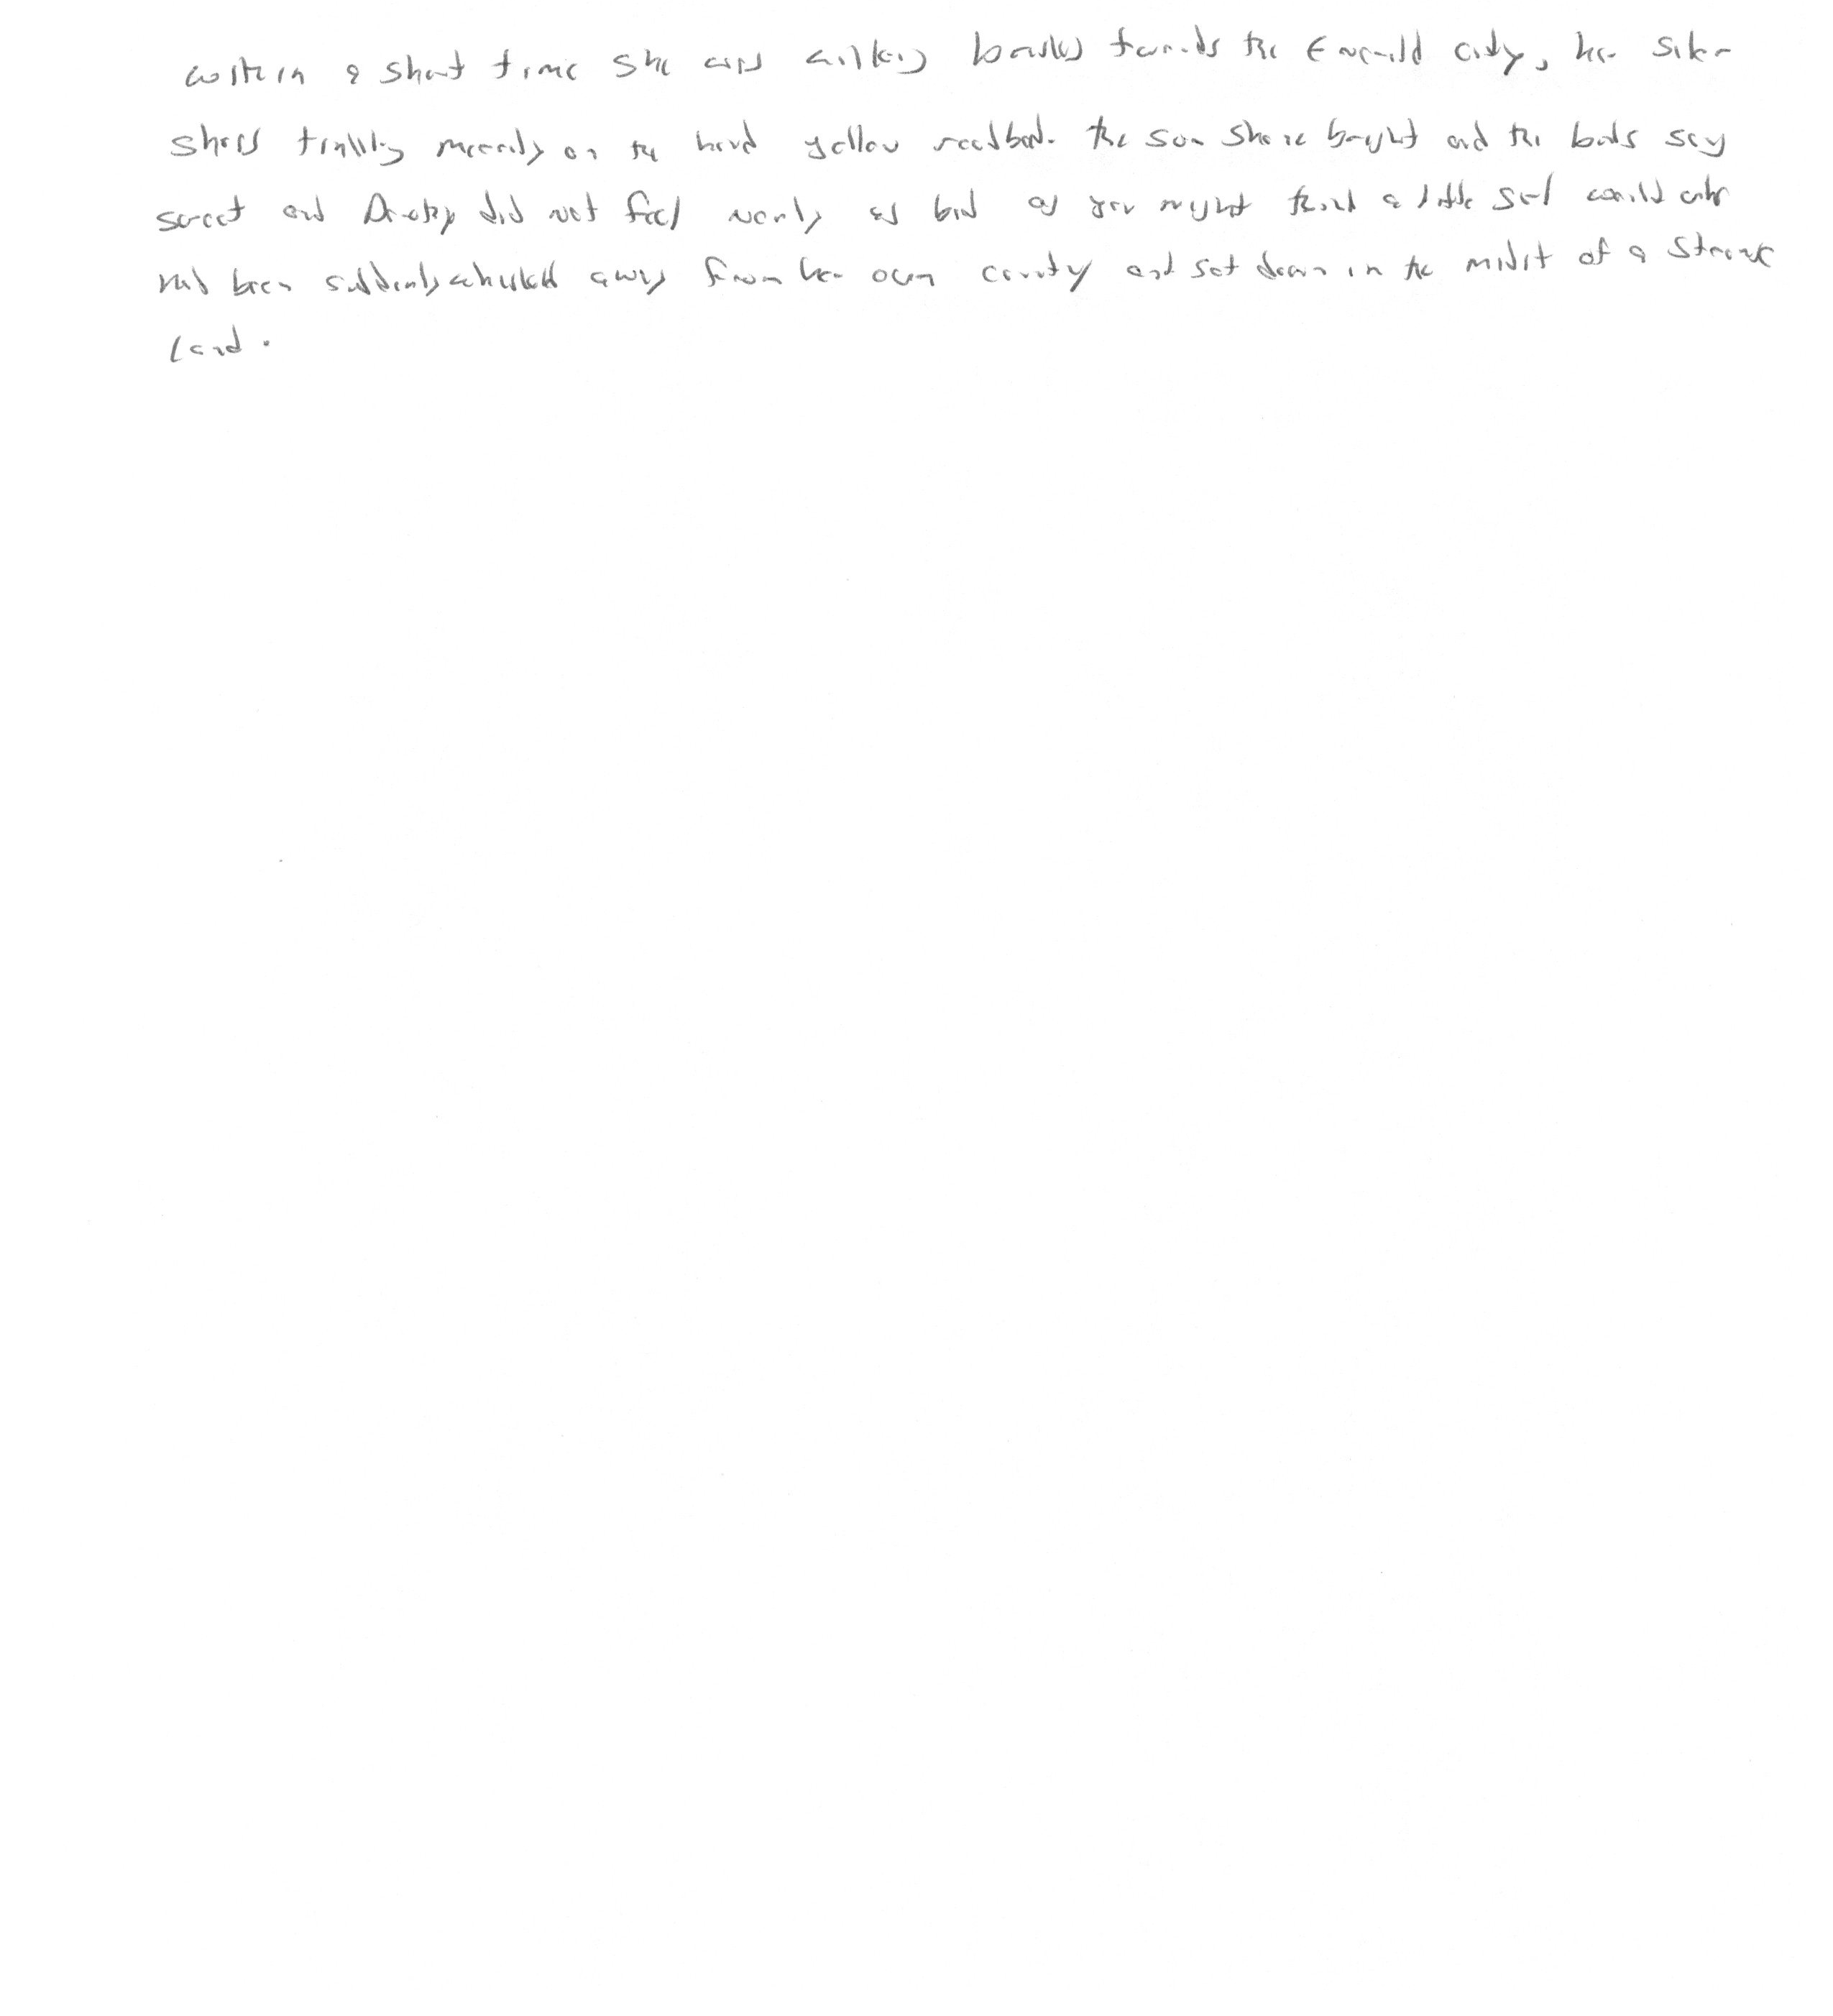 within a short time she was walking briskly towards the Emerald city, her silver
shoes tinkling merrily on the hard yellow roadbed. the sun shone bright and the birds sang
sweet and Dorothy did not feel nearly as bad as you might think a little girl would who
had been suddenly whisked away from her own country and set down in the midst of a strange
land.